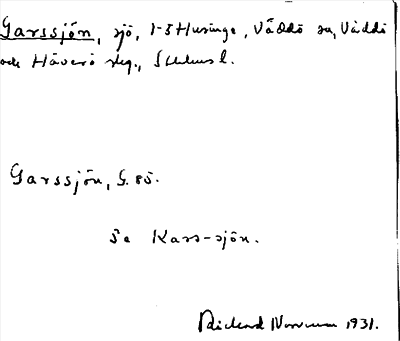 Garssjön, sjö, 1-3 Husinge, Väddö sn, Väddö
och Häverö skg., Sthlms l.
Garssjön, G. 85.
Se Kars-sjön.
Rickard 1931.